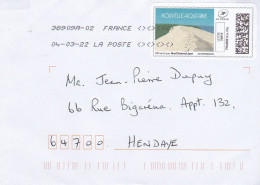 38909A-02 FRANCE
04-03-22 LA POSTE
NOUVELLE-AQUITAINE
Mc. Jean-Pierre Dupuy
66 Rue Biguéréna, Appt. 132,
64700 HENDAYE